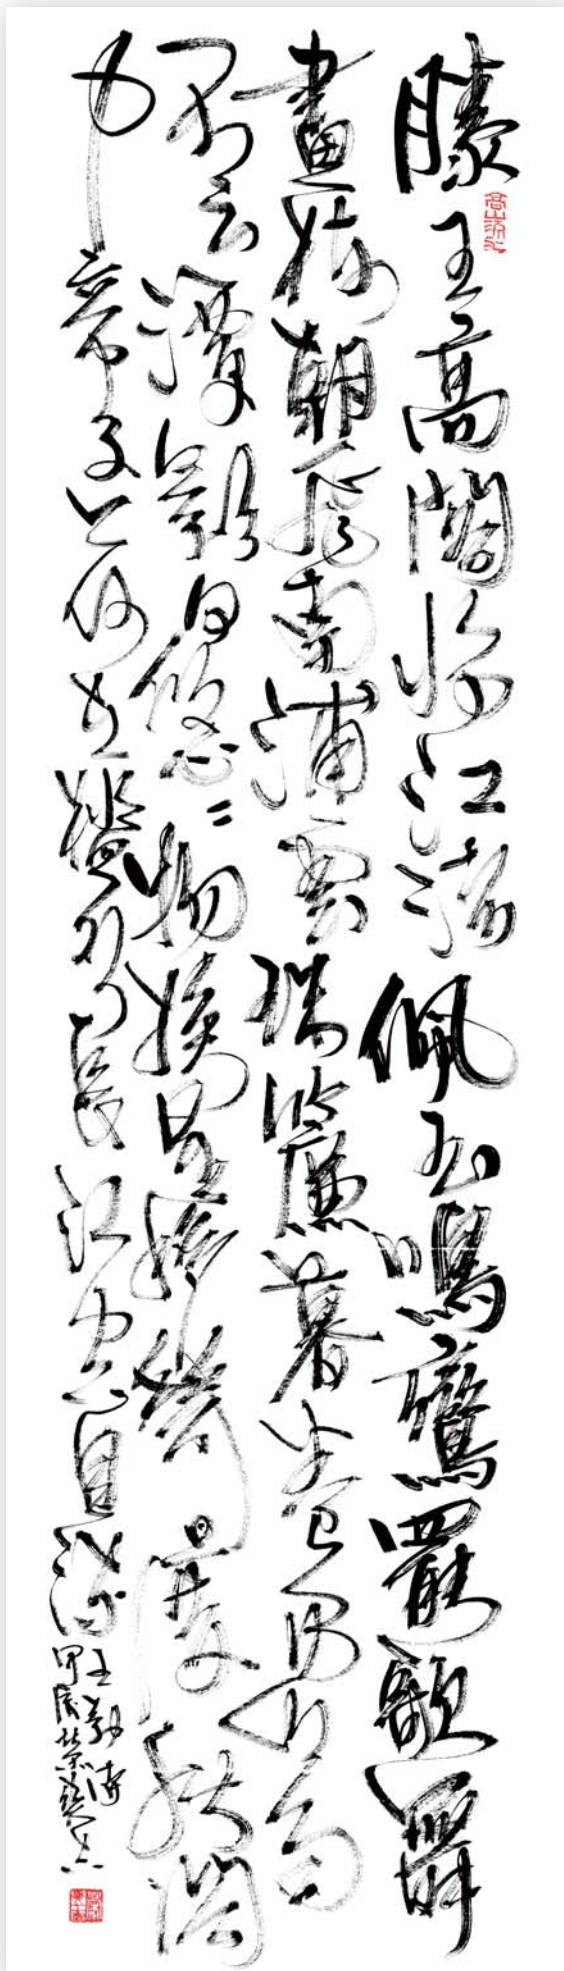 滕王高閣臨江渚佩玉鳴鸞罷歌舞
畫棟朝飛南浦雲珠簾暮卷西山雨
閑云潭影日悠〻物換星移幾度秋閣
中帝子今何在檻外長江空自流
王勃詩
甲辰
高山流水